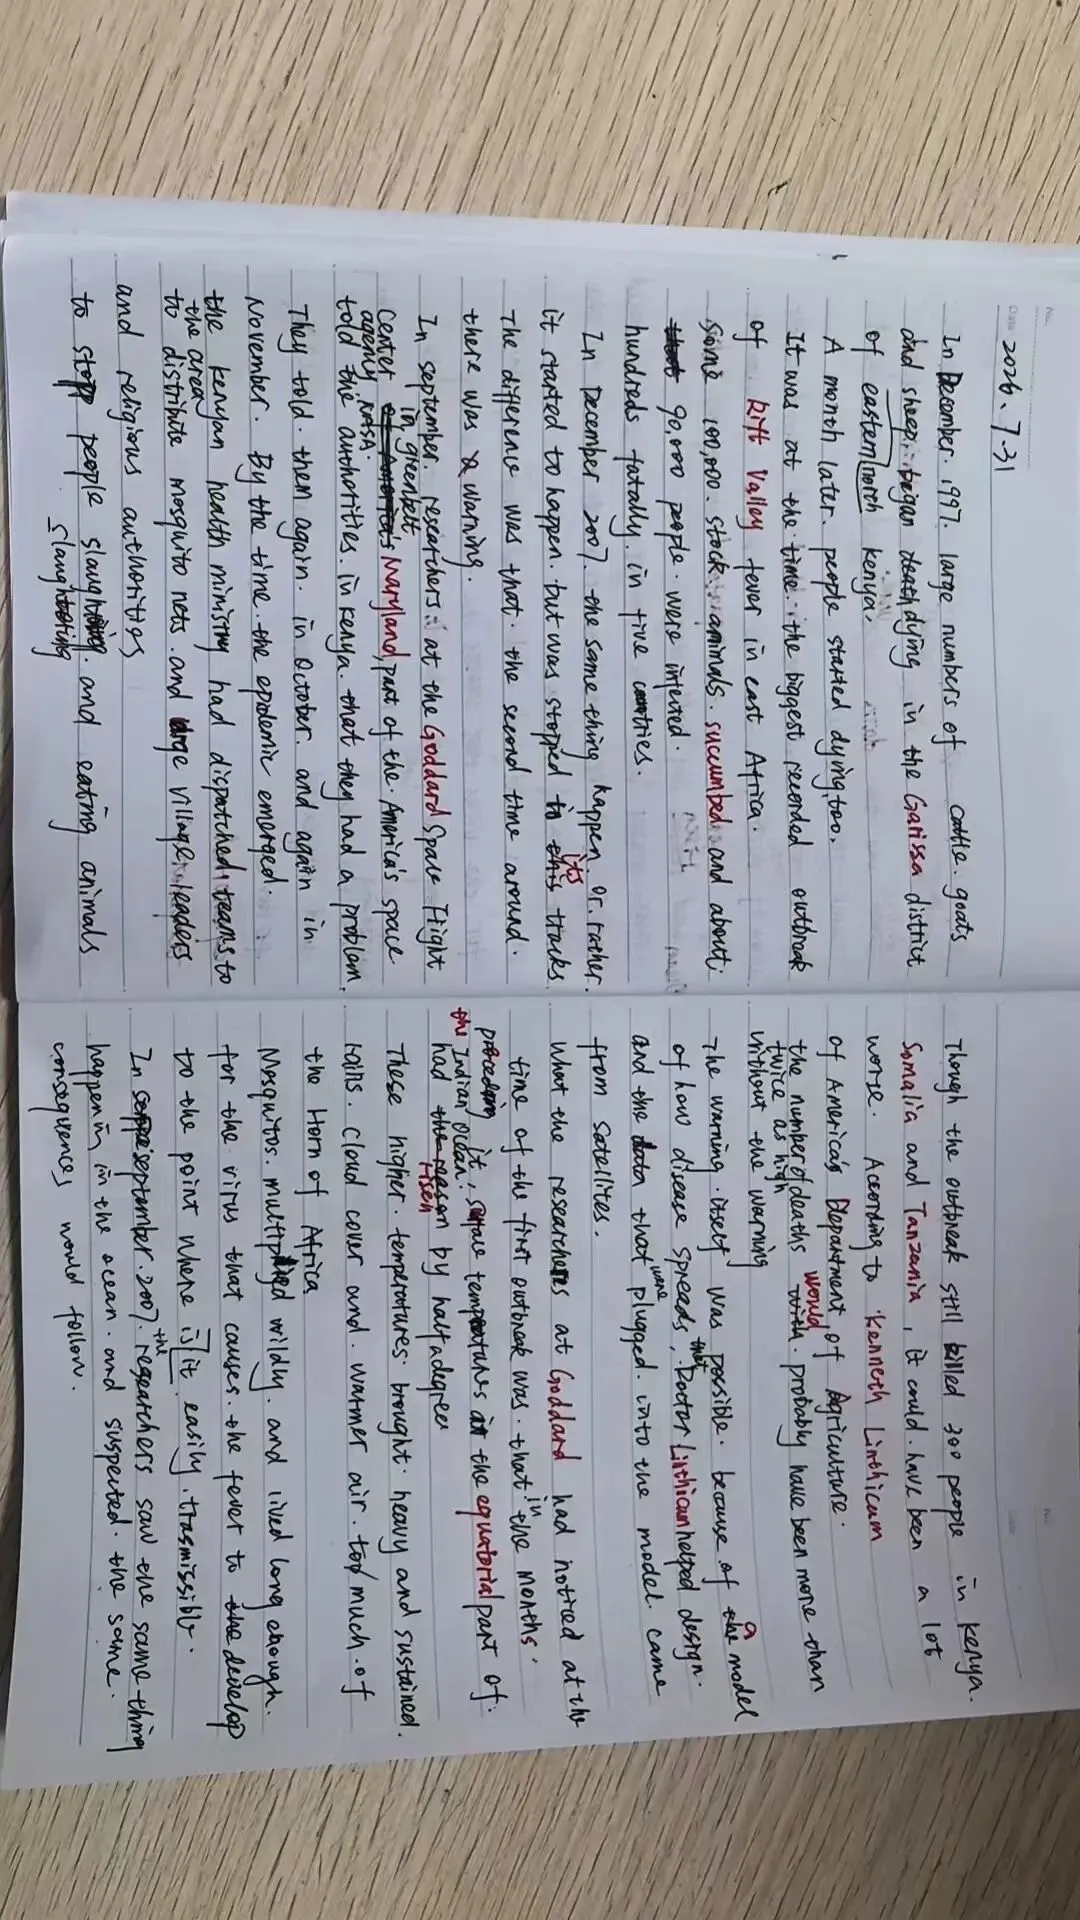 No.
Date 2026.7-31
In December. 1997. large numbers of cattle. goats
and sheep. began death dying in the Garissa district
of eastern north kenya,
A month later. people started dying,too.
It was at the time. the biggest recorded outbreak
of Rift Valley fever in east Africa.
some 100,000. stock animals. succumbed and about.
90,000 people. were infected.
hundreds fatally. in five countries.
In December 2007. the same thing happen. or. rather.
it started to happen. but was stopped in this its tracks.
The difference was that. the second time around.
there was a warning.
In september. researchers at the Goddard Space Flight
Center in greenbelt Maryland, part of the. America's space
agency, NASA.
told the authorities. in kenya. that they had a problem.
They told. them again. in October. and again in
November. By the time. the epidemic emerged.
the kenyan health ministry had dispatched teams to
the area
to distribute mosquito nets. and urge village leaders
and religious authorities
to stop people slaughtering. and eating animals
slaughtering
Though the outbreak still killed 300 people in kenya.
Somalia and Tanzania, it could have been a lot
worse. According to Kenneth Linthicum
of America's Department of Agriculture.
the number of deaths would with. probably have been more than
twice as high
without the warning
The warning. itself was possible. because of the a model
of how disease spreads, that Doctor Linthicum helped design.
and the data that were plugged. into the model. came
from satellites.
What the researchers at Goddard had noticed at the
time of the first outbreak was. that in the months.
preceding it. surface temperatures in the equatorial part of.
the Indian ocean.
had the reason risen by half a degree
These higher. temperatures. brought. heavy and sustained.
rains. cloud cover and. warmer air. to much. of
the Horn of Africa
Mosquitos. multiplied wildly. and lived long enough.
for the virus that causes. the fever to the develop
to the point where is it easily. trasmissible.
In september. 2007. the researchers saw the same thing
happen in the ocean. and suspected. the same.
consequences would follow.